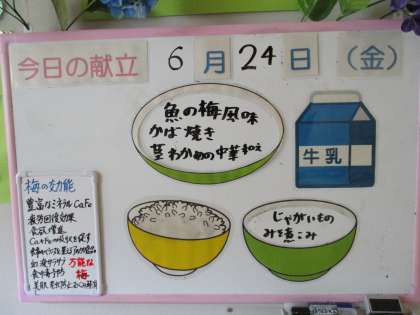 今日の献立 6月24日(金)
魚の梅風味
かば焼き
茎わかめの中華和え
牛乳
じゃがいもの
みそ煮こみ
梅の効能
豊富なミネラル CaFe
疲労回復効果
食欲増進
万能な
梅
食中毒予防